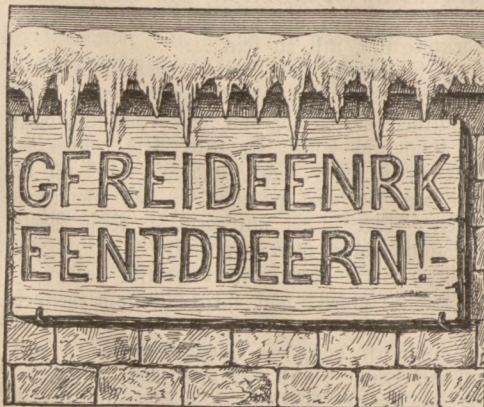 GFREIDEENRK
EENTDDEERN!-